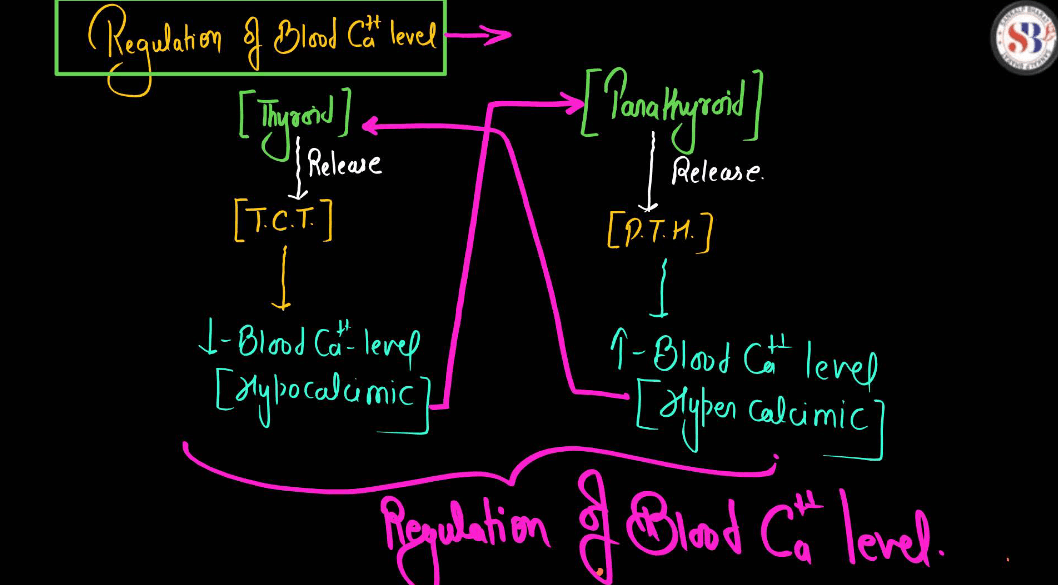 Regulation of Blood Ca++ level
[Thyroid]
[Parathyroid]
Release
Release.
[T.C.T.]
[P.T.H.]
↓-Blood Ca++-level
[Hypocalcimic]
↑-Blood Ca++ level
[Hyper calcimic]
Regulation of Blood Ca++ level.
SB